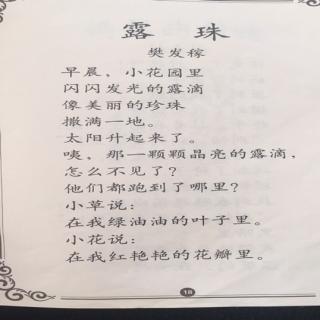 露 珠
樊发稼
早晨,小花园里
闪闪发光的露滴
像美丽的珍珠
撒满一地。
太阳升起来了。
咦,那一颗颗晶亮的露滴,
怎么不见了?
他们都跑到了哪里?
小草说:
在我绿油油的叶子里。
小花说:
在我红艳艳的花瓣里。
18